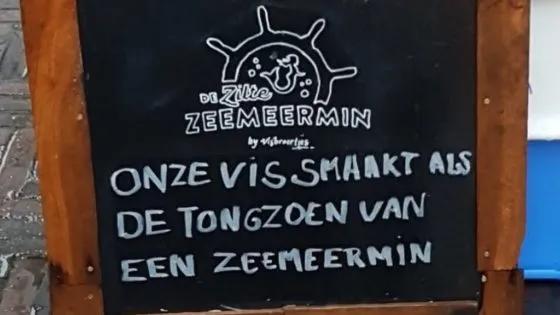 DE Zilte
ZEEMEERMIN
by Visbroertjes
ONZE VIS SMAAKT ALS
DE TONGZOEN VAN
EEN ZEEMEERMIN